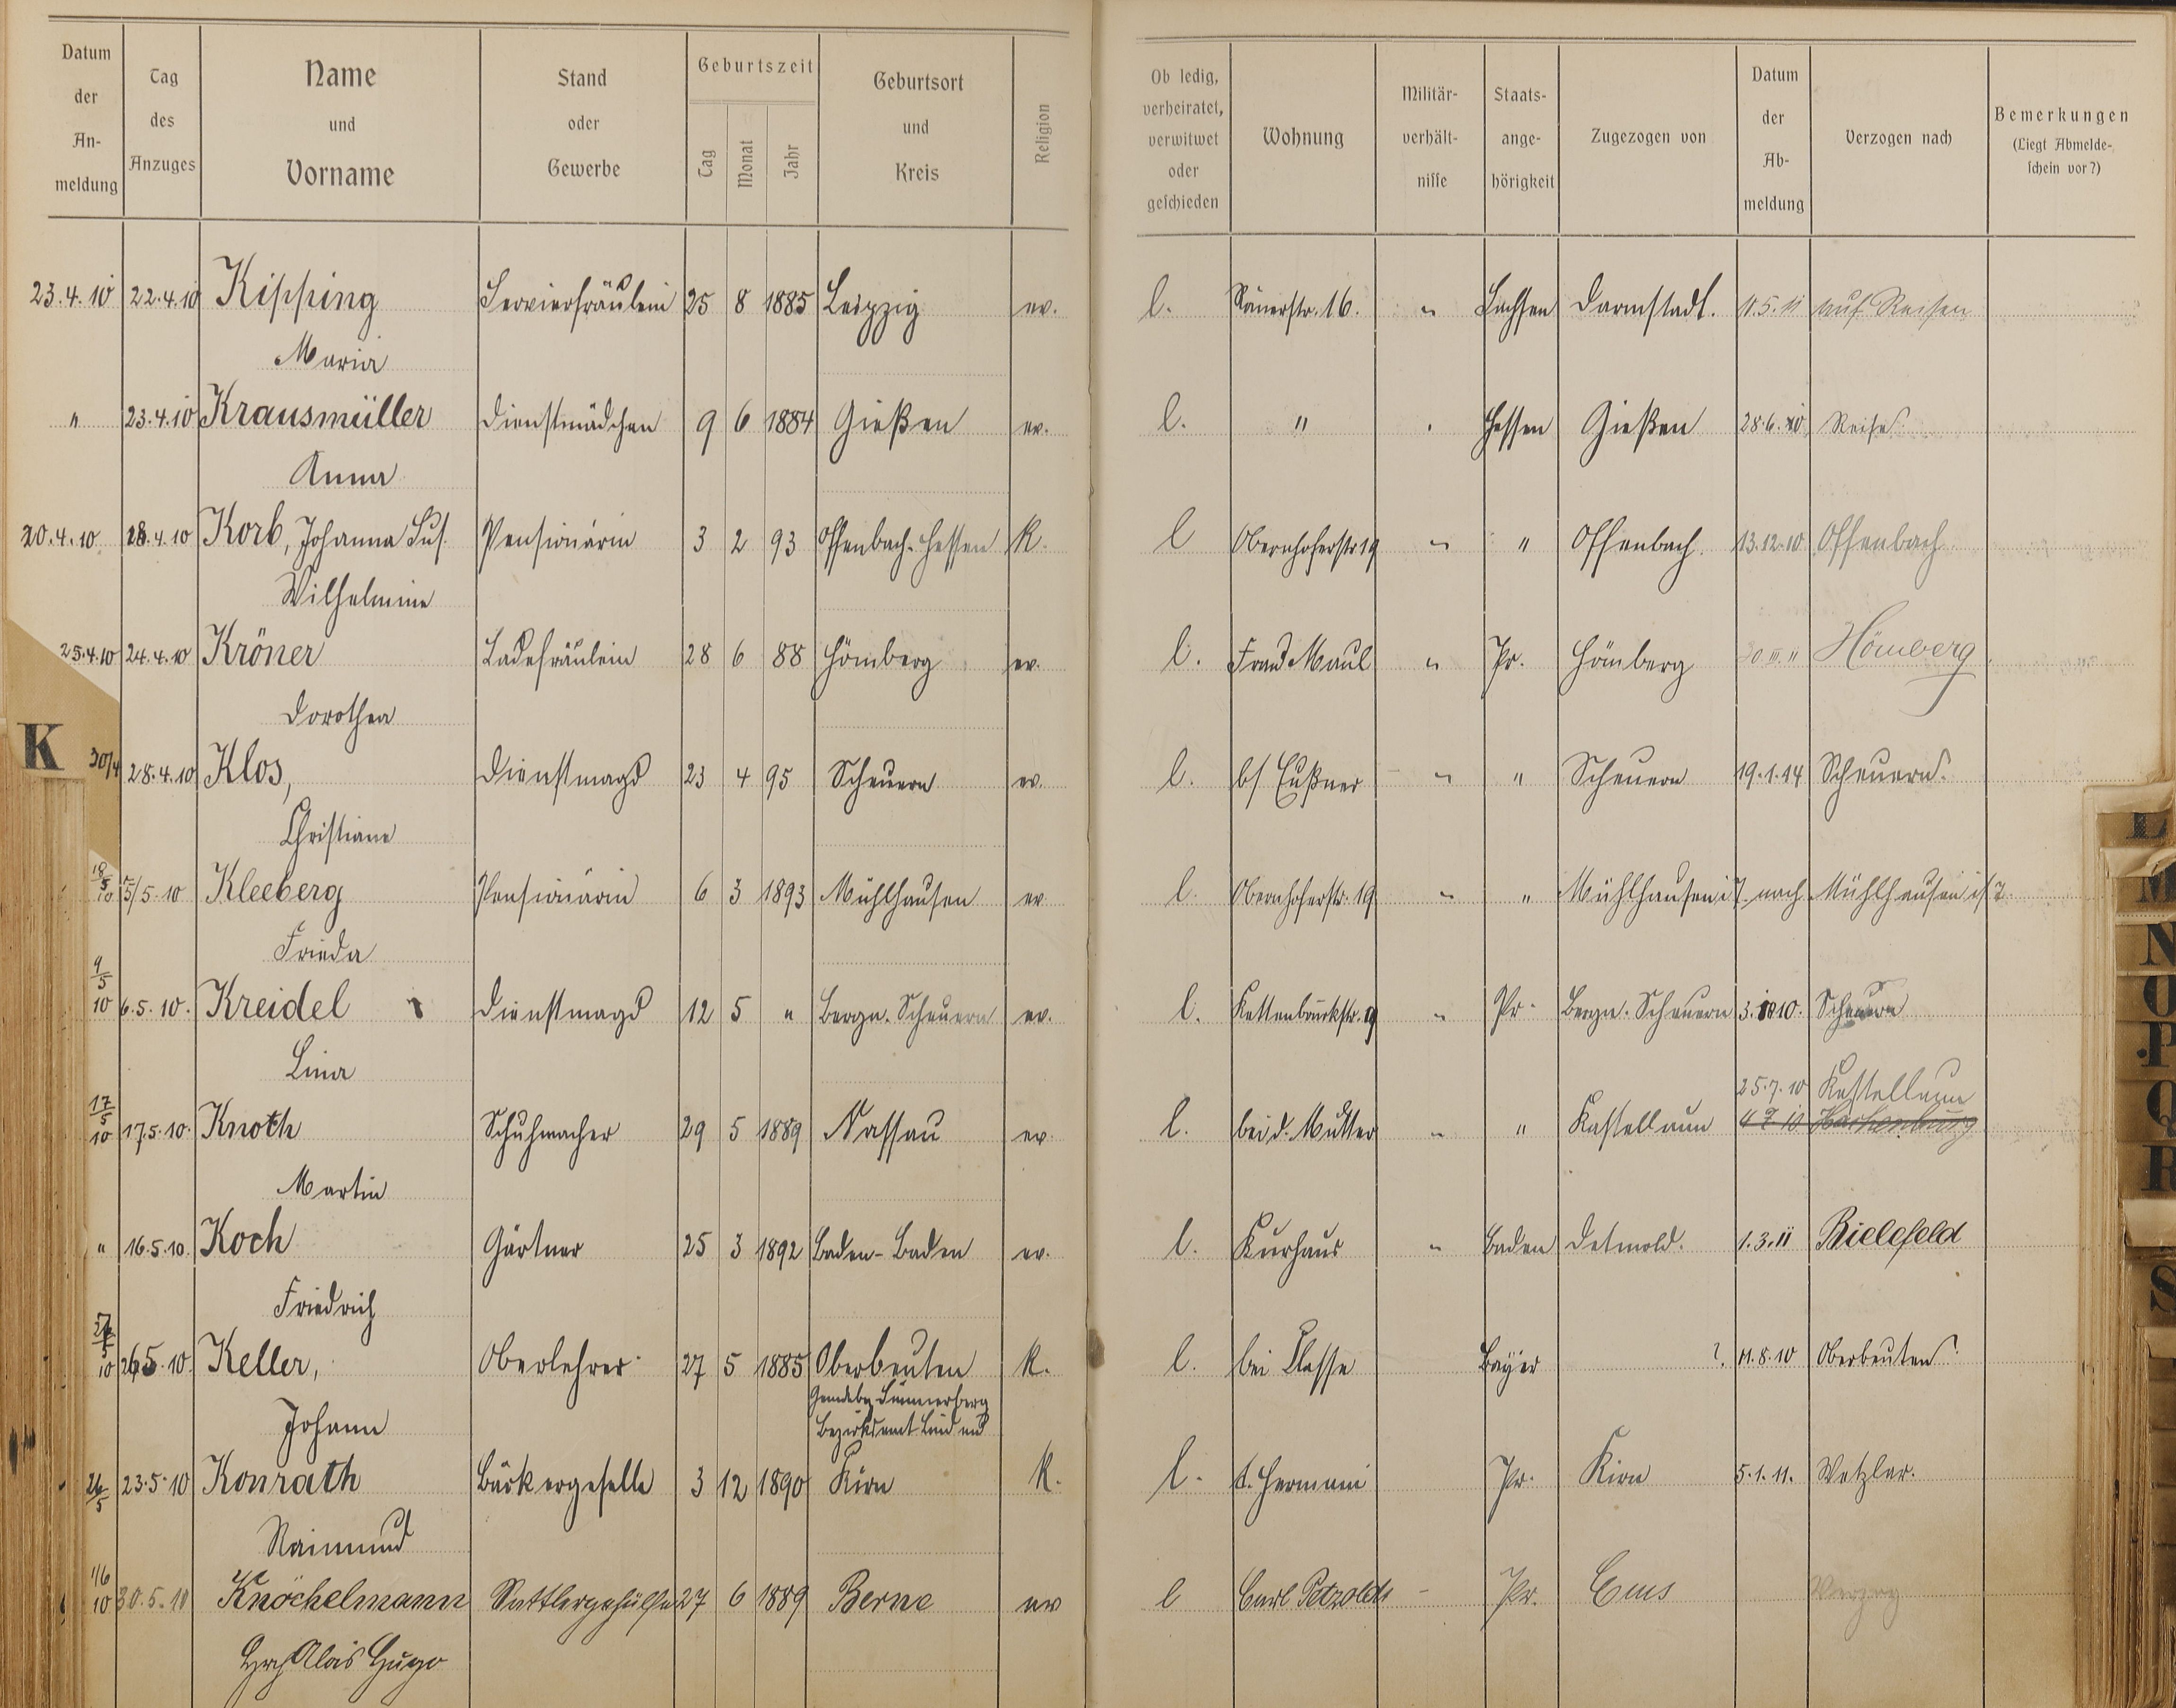 Datum der An- meldung | Tag des Anzuges | Name und Vorname | Stand oder Gewerbe | Geburtszeit Tag Monat Jahr | Geburtsort und Kreis | Religion | Ob ledig, verheiratet, verwitwet oder geschieden | Wohnung | Militär- verhält- nisse | Staats- ange- hörigkeit | Zugezogen von | Datum der Ab- meldung | Verzogen nach | Bemerkungen (Liegt Abmelde- schein vor?)
23.4.10 22.4.10 Kipping Servierfräulein 25 8 1885 Leipzig ev. l. Römerstr. 16. " Sachsen Darmstadt. 11.5.11 auf Reisen
Maria
" 23.4.10 Krausmüller Dienstmädchen 9 6 1884 Gießen ev. l. " Hessen Gießen 28.6.10 Reise
Anna
20.4.10 18.4.10 Korb, Johanna Sus. Pensionärin 3 2 93 Offenbach-Hessen K. l Obernhoferstr 19 " " Offenbach. 13.12.10 Offenbach
Wilhelmine
25.4.10 24.4.10 Kröner Ladefräulein 28 6 88 Hömberg ev. l. Frau Maul " Pr. Hömberg 30 III. 11 Hömberg
Dorothea
K
30/4 28.4.10 Klos, Dienstmagd 23 4 95 Scheuern ev. l. b/ Eußner " " Scheuern 19.1.14 Scheuern.
Christiane
18/5 10 15/5.10 Kleeberg Pensionärin 6 3 1893 Mühlhausen ev l. Obernhoferstr. 19 " " Mühlhausen i T. nach Mühlhausen i/ T
Frieda
9/5 10 6.5.10. Kreidel Dienstmagd 12 5 " Bergn. Scheuern ev. l. Kettenbrückstr. 9 " Pr. Bergn. Scheuern 3. 10. Scheuern
Lina
25.7.10 Kastellaun
17/5 10 17.5.10. Knoth Schuhmacher 29 5 1889 Nassau ev. l. bei d. Mutter " " Kastellaun 4.7.10 Hachenburg
Martin
" 16.5.10. Koch Gärtner 25 3 1892 Baden-Baden ev. l. Kurhaus " Baden Detmold. 1.3.11 Bielefeld
Friedrich
27/5 10 26.5.10. Keller, Oberlehrer 27 5 1885 Oberbeuten K. l. bei Bayer ?. 11.8.10 Oberbeuten
Bezirksamt
Johann
26/5 23.5.10 Konrath Bäckergeselle 3 12 1890 Kirn K. l. Hermani Pr. Kirn 5.1.11. Wetzlar.
Raimund
1/6 10 30.5.10 Knöchelmann Sattlergehülfe 27 6 1889 Berne ev l Carl Petzolds - Pr. Ems Verzog
Alois Hugo
L
M
N
O
P
Q
R
S